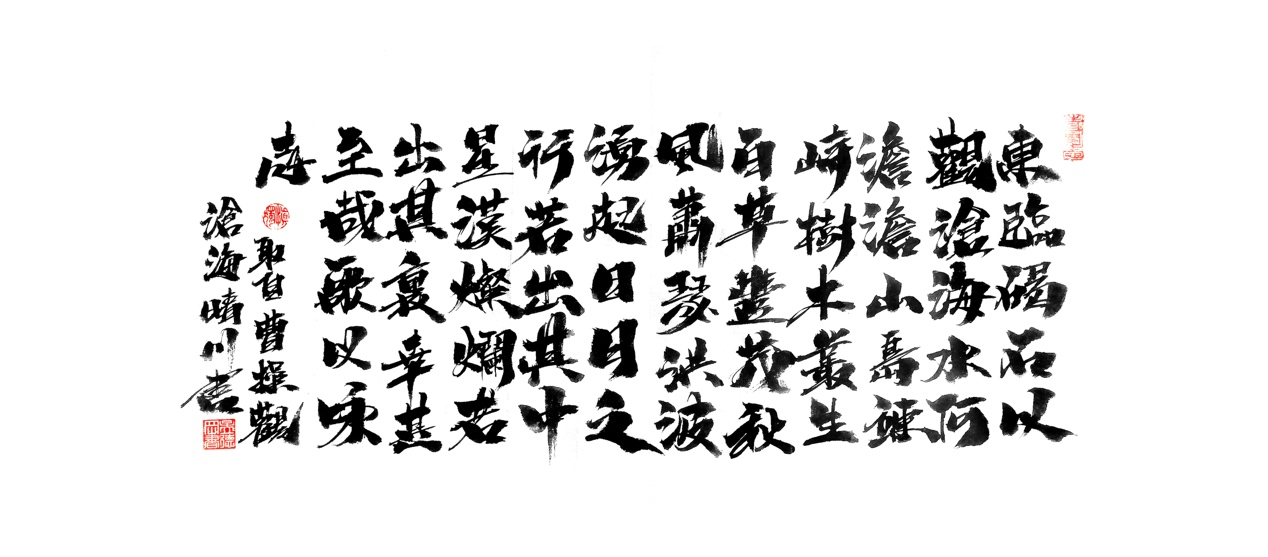 東臨碣石以
觀滄海水何
澹澹山島竦
崎樹木叢生
百草豐茂秋
風蕭瑟洪波
湧起日月之
行若出其中
星漢燦爛若
出其裏幸甚
至哉歌以咏
志
取自曹操觀
滄海晴川書